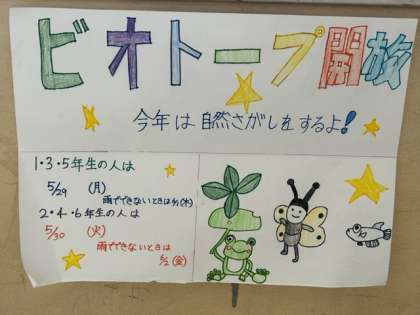 ビオトープ開放
今年は自然さがしをするよ!
1・3・5年生の人は
5/29 (月)
雨でできないときは6/1(木)
2・4・6年生の人は
5/30 (火)
雨でできないときは
6/2 (金)